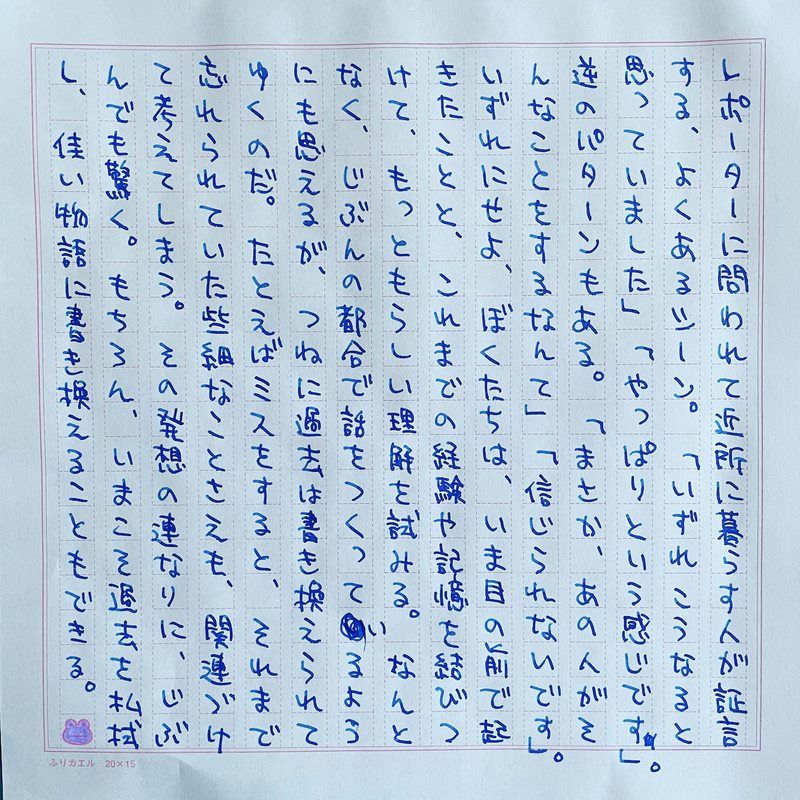 レポーターに問われて近所に暮らす人が証言
する、よくあるシーン。「いずれこうなると
思っていました」「やっぱりという感じです」。
逆のパターンもある。「まさか、あの人がそ
んなことをするなんて」「信じられないです」。
いずれにせよ、ぼくたちは、いま目の前で起
きたことと、これまでの経験や記憶を結びつ
けて、もっともらしい理解を試みる。なんと
なく、じぶんの都合で話をつくっているよう
にも思えるが、つねに過去は書き換えられて
ゆくのだ。たとえばミスをすると、それまで
忘れられていた些細なことさえも、関連づけ
て考えてしまう。その発想の連なりに、じぶ
んでも驚く。もちろん、いまこそ過去を払拭
し、佳い物語に書き換えることもできる。
ふりカエル 20×15